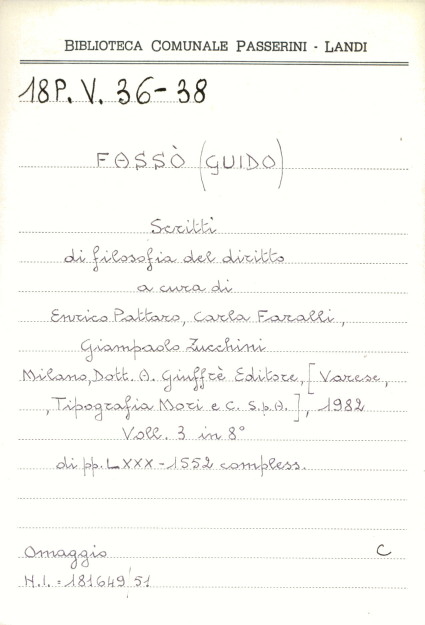 BIBLIOTECA COMUNALE PASSERINI - LANDI
18P. V. 36-38
FASSÒ (GUIDO)
Scritti
di filosofia del diritto
a cura di
Enrico Pattaro, Carla Faralli,
Giampaolo Zucchini
Milano, Dott. A. Giuffrè Editore, [Varese,
, Tipografia Mori e C. S.p.A.], 1982
Voll. 3 in 8°
di pp. LXXX-1552 compless.
Omaggio C
N.I. = 181649/51